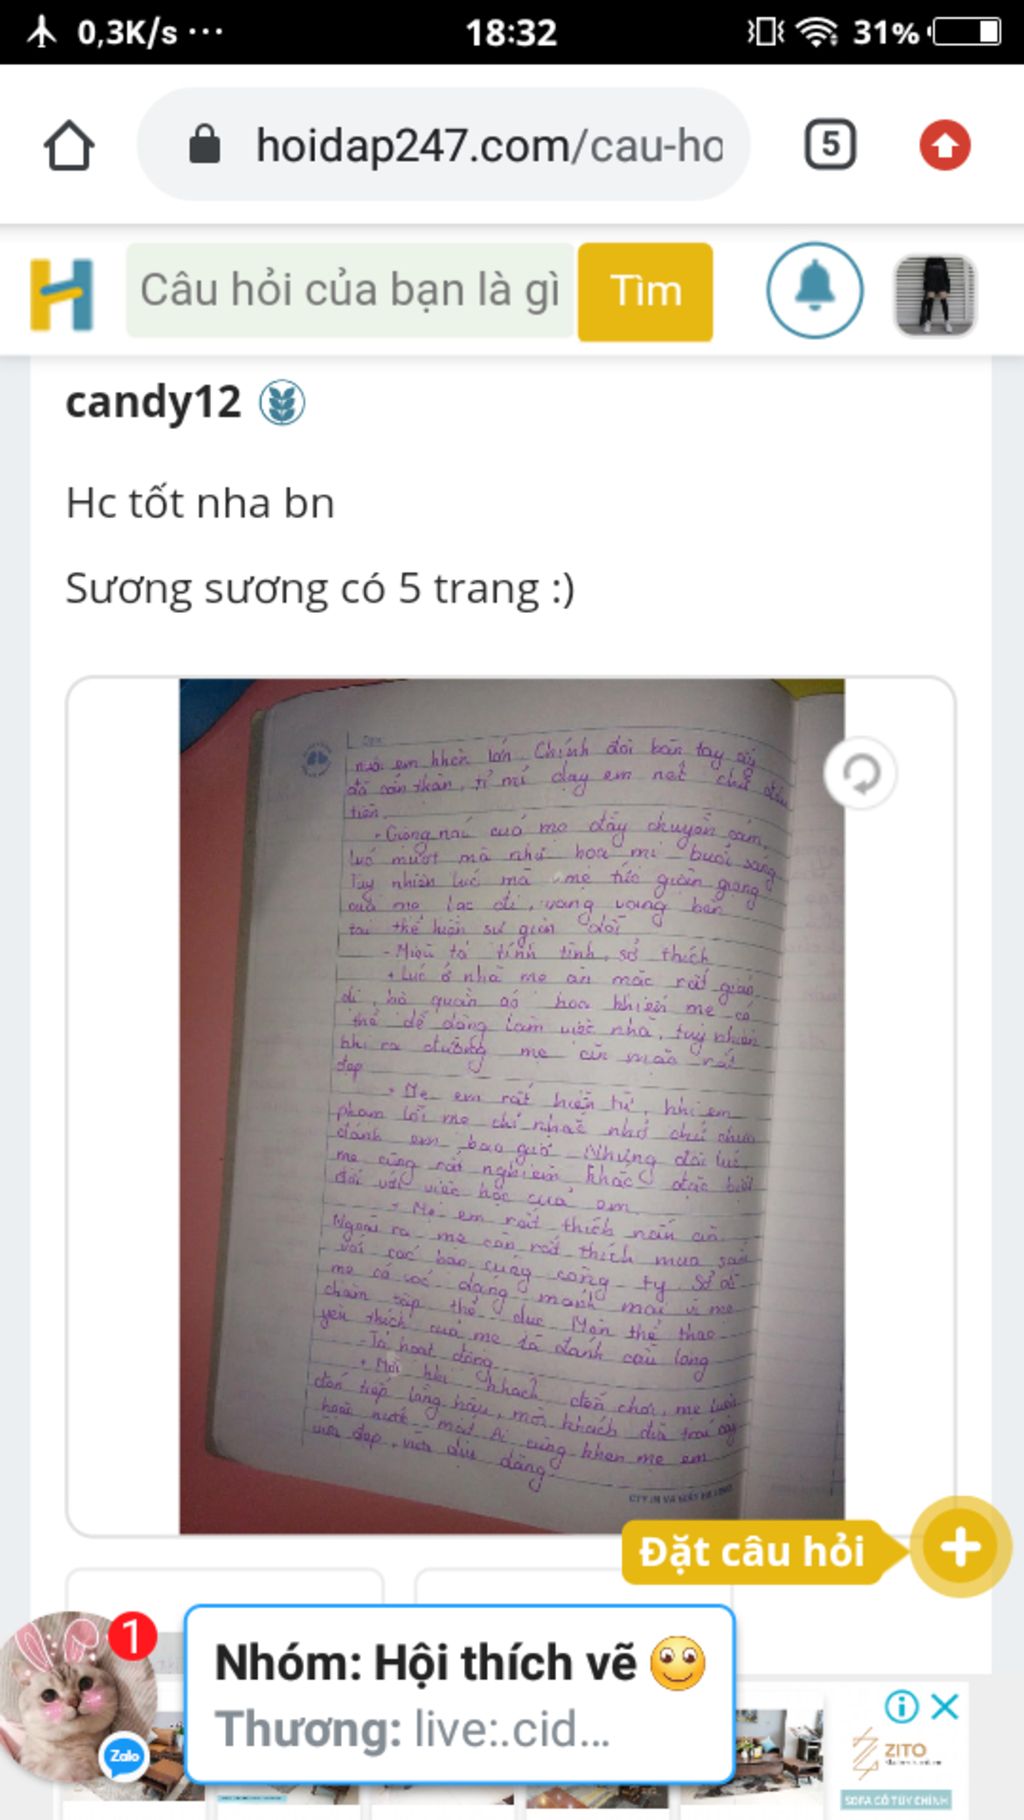 0,3K/s ...
18:32
31%
hoidap247.com/cau-ho
5
H
Câu hỏi của bạn là gì
Tìm
candy12
Hc tốt nha bn
Sương sương có 5 trang :)
em khôn lớn. Chính đôi bàn tay ấy
đã cẩn thận, tỉ mỉ dạy em nét chữ đầu
tiên.
- Giọng nói của mẹ đầy chuyền cảm,
lúc mượt mà như hoạ mi buổi sáng
Tuy nhiên lúc mà mẹ tức giận giọng
của mẹ lạc đi, vang vang bên
tai thể hiện sự giận dỗi
- Miêu tả tính tình, sở thích
+ Lúc ở nhà mẹ ăn mặc rất giản
dị, bộ quần áo hoa khiến mẹ có
thể dễ dàng làm việc nhà, tuy nhiên
khi ra đường mẹ ăn mặc rất
đẹp
+ Mẹ em rất hiền từ, khi em
phạm lỗi mẹ chỉ nhắc nhở chứ chưa
đánh em bao giờ. Nhưng đôi lúc
mẹ cũng rất nghiêm khắc đặc biệt
đối với việc học của em.
+ Mẹ em rất thích nấu ăn.
Ngoài ra mẹ còn rất thích mua sắm
với các bác cùng công ty. Sở dĩ
mẹ có vóc dáng mảnh mai vì mẹ
chăm tập thể dục. Môn thể thao
yêu thích của mẹ là đánh cầu lông
- Tả hoạt động
+ Mỗi khi khách đến chơi, mẹ luôn
đón tiếp, mời khách đĩa trái cây
hoặc nước mát. Ai cũng khen mẹ em
vừa đẹp, vừa dịu dàng.
Đặt câu hỏi
1
Nhóm: Hội thích vẽ
Thương: live:.cid...
Zalo
ZITO
SOFA CÓ TÙY CHỈNH